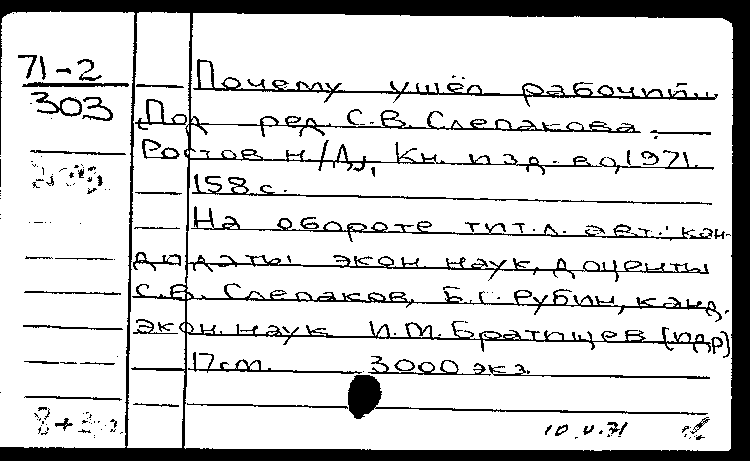 71-2
303
Почему ушёл рабочий..
[Под ред. С.В. Слепакова.
Ростов н/Д., Кн. изд-во, 1971.
158 с.
На обороте тит.л. авт.: кан-
дидаты экон. наук, доценты
С.В. Слепаков, Б.Г. Рубин, канд.
экон. наук И.М. Братищев [и др]
17 см. 3000 экз.
10.V.71